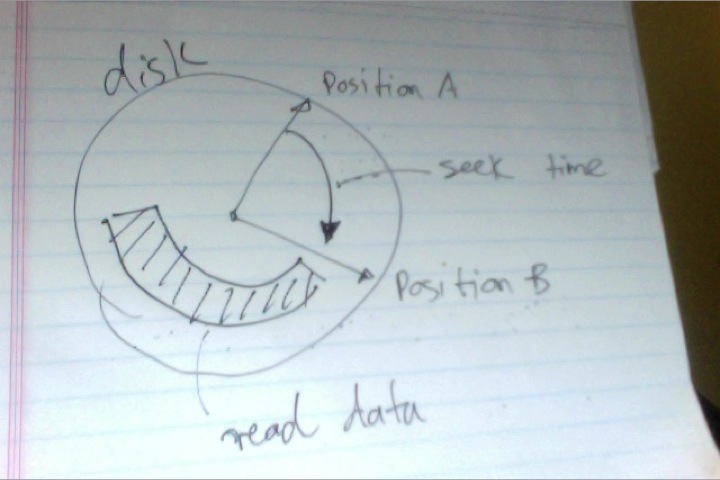 disk
Position A
seek time
Position B
read data